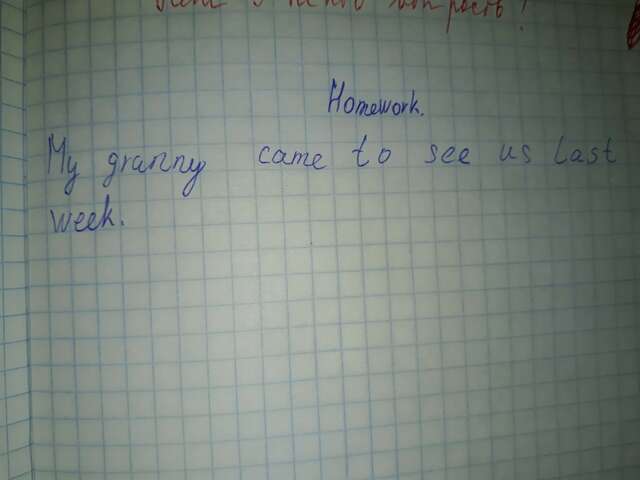 Homework.
My granny came to see us last
week.